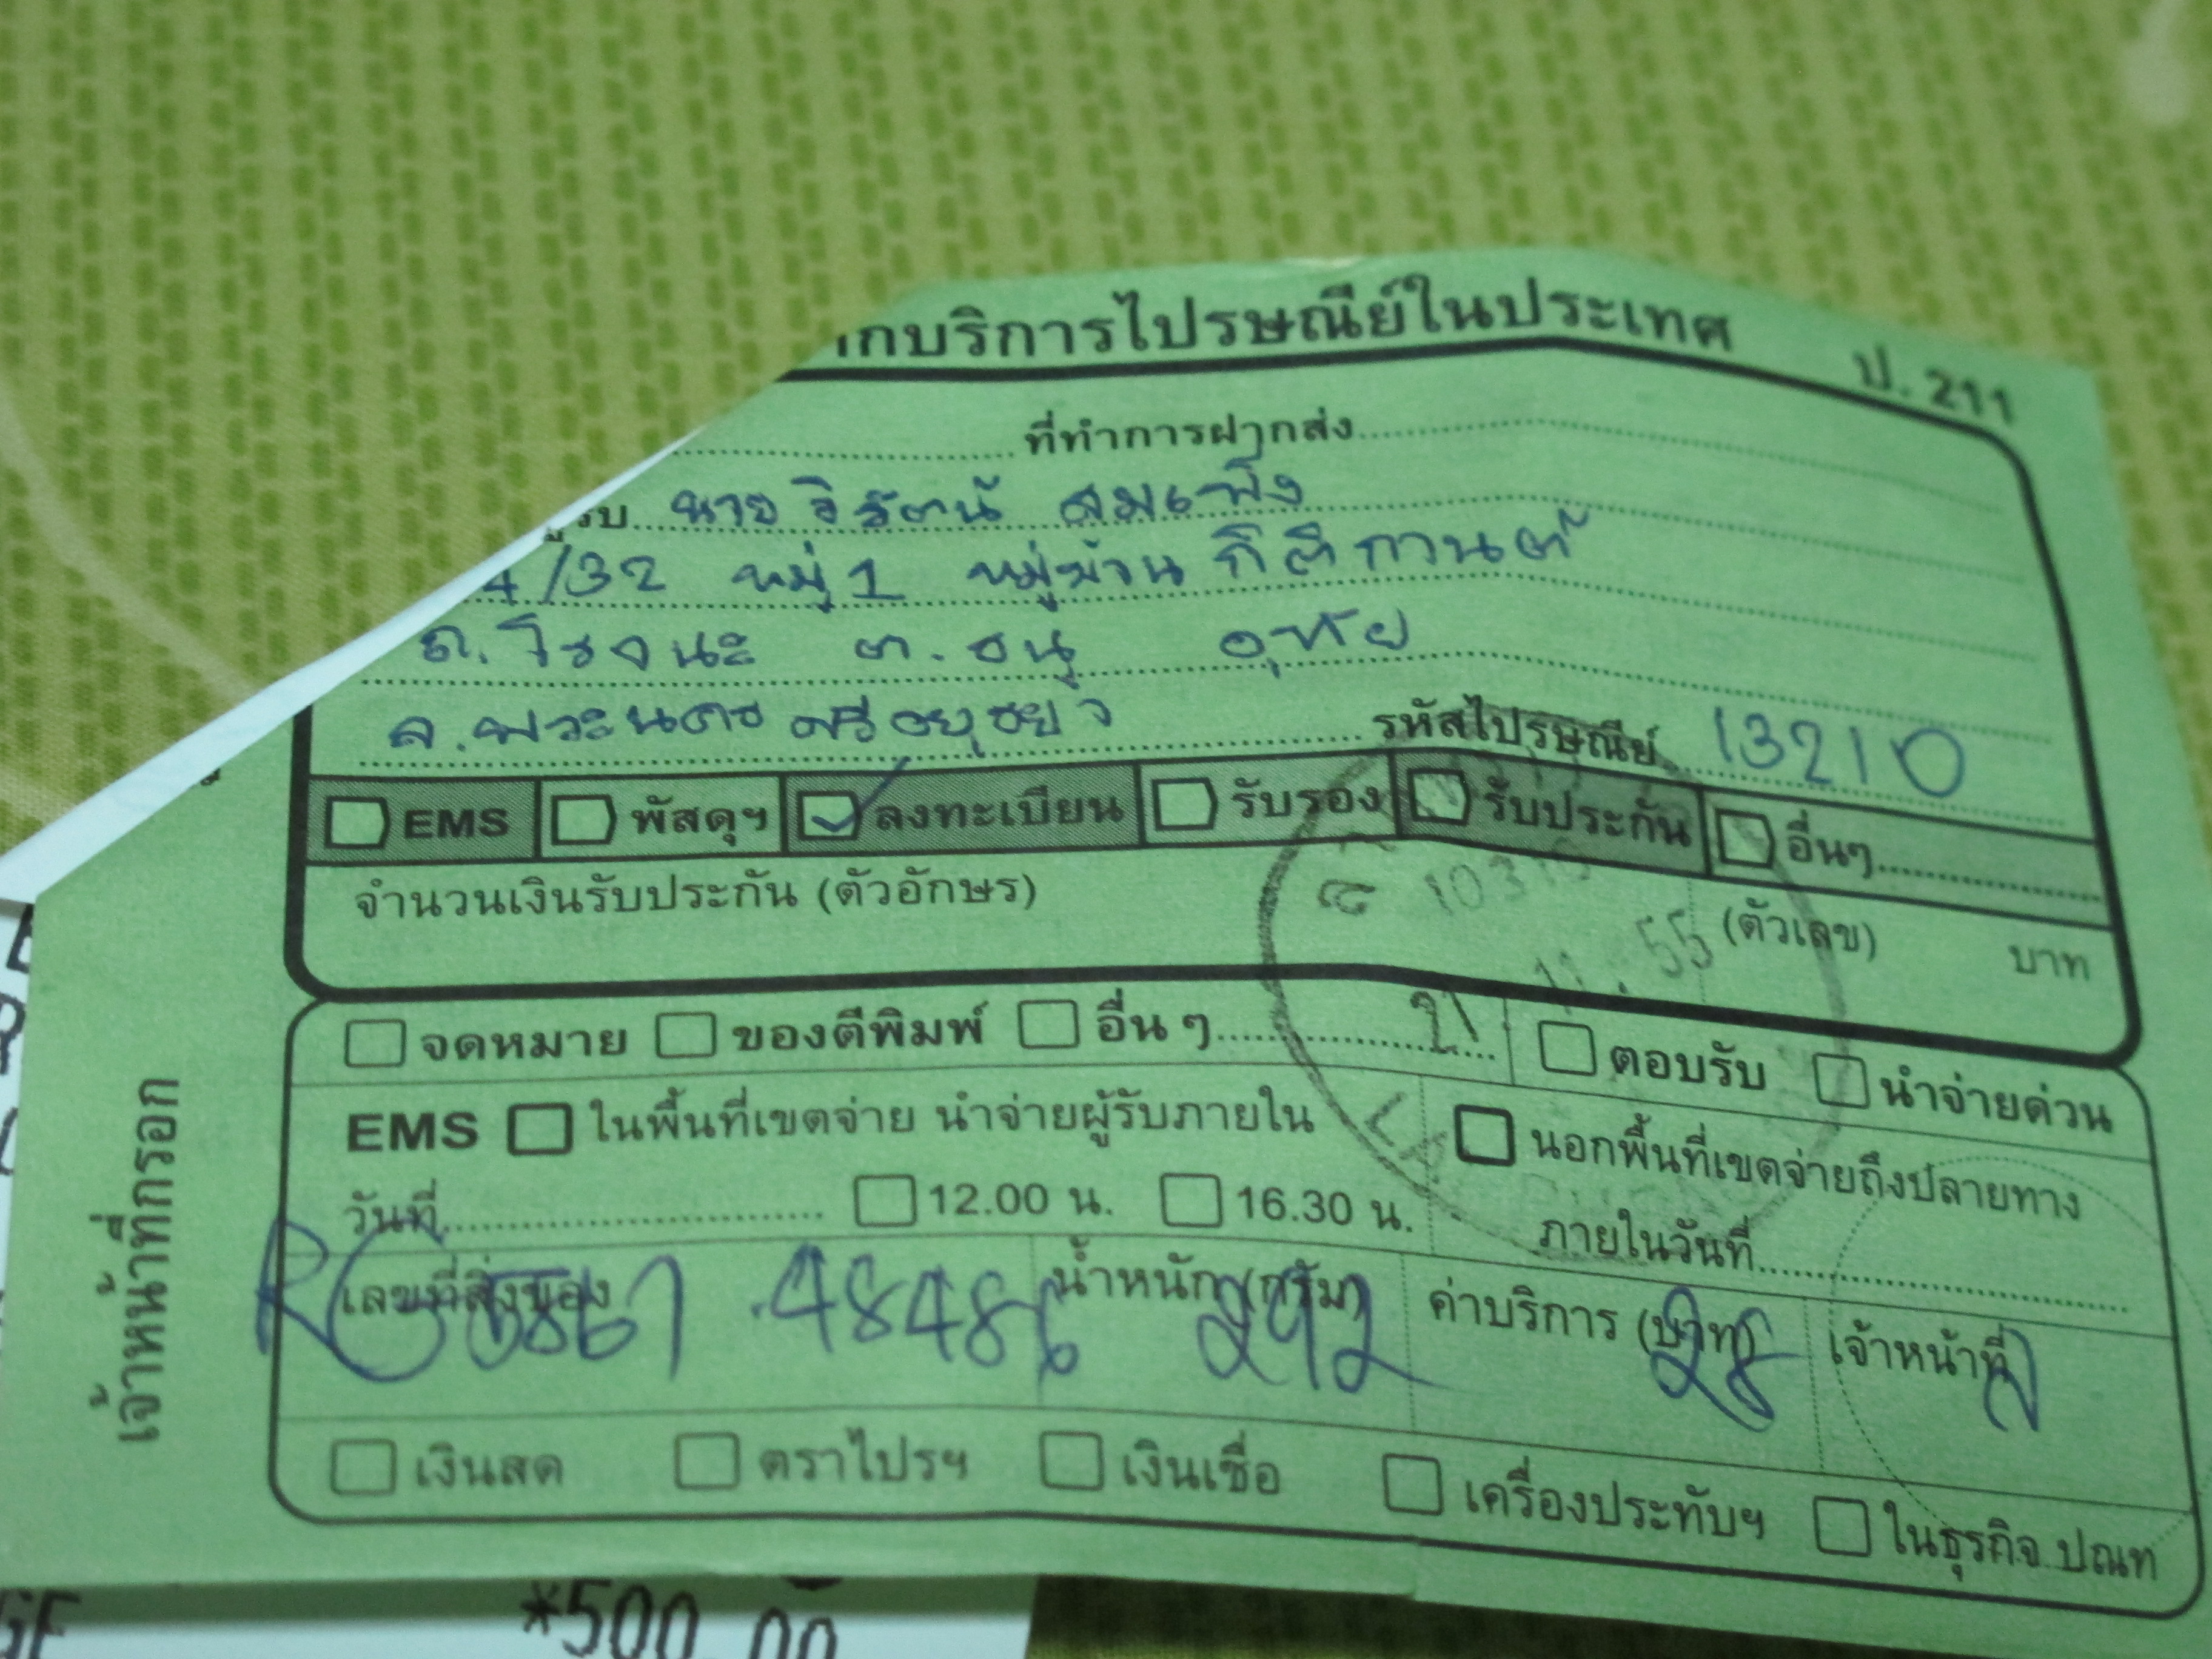 กบริการไปรษณีย์ในประเทศ ป. 211
ที่ทำการฝากส่ง
รับ นายวิรัตน์ สมเพ็ง
4/32 หมู่ 1 หมู่บ้าน กิติกานนต์
ถ.โรจนะ ต.ธนู อุทัย
จ.พระนครศรีอยุธยา รหัสไปรษณีย์ 13210
EMS พัสดุฯ ลงทะเบียน รับรอง รับประกัน อื่นๆ
จำนวนเงินรับประกัน (ตัวอักษร) (ตัวเลข) บาท
จดหมาย ของตีพิมพ์ อื่น ๆ ตอบรับ นำจ่ายด่วน
EMS ในพื้นที่เขตจ่าย นำจ่ายผู้รับภายใน นอกพื้นที่เขตจ่ายถึงปลายทาง
วันที่ 12.00 น. 16.30 น. ภายในวันที่
เลขที่สิ่งของ น้ำหนัก (กรัม) ค่าบริการ (บาท) เจ้าหน้าที่
48486 292 28
เงินสด ตราไปรฯ เงินเชื่อ เครื่องประทับฯ ในธุรกิจ ปณท
เจ้าหน้าที่กรอก
*500.00